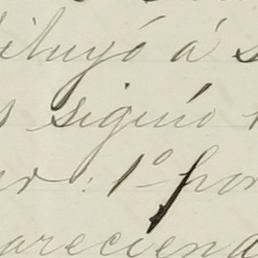 ibuyó á s
s siguió
er: 1º por
areciend